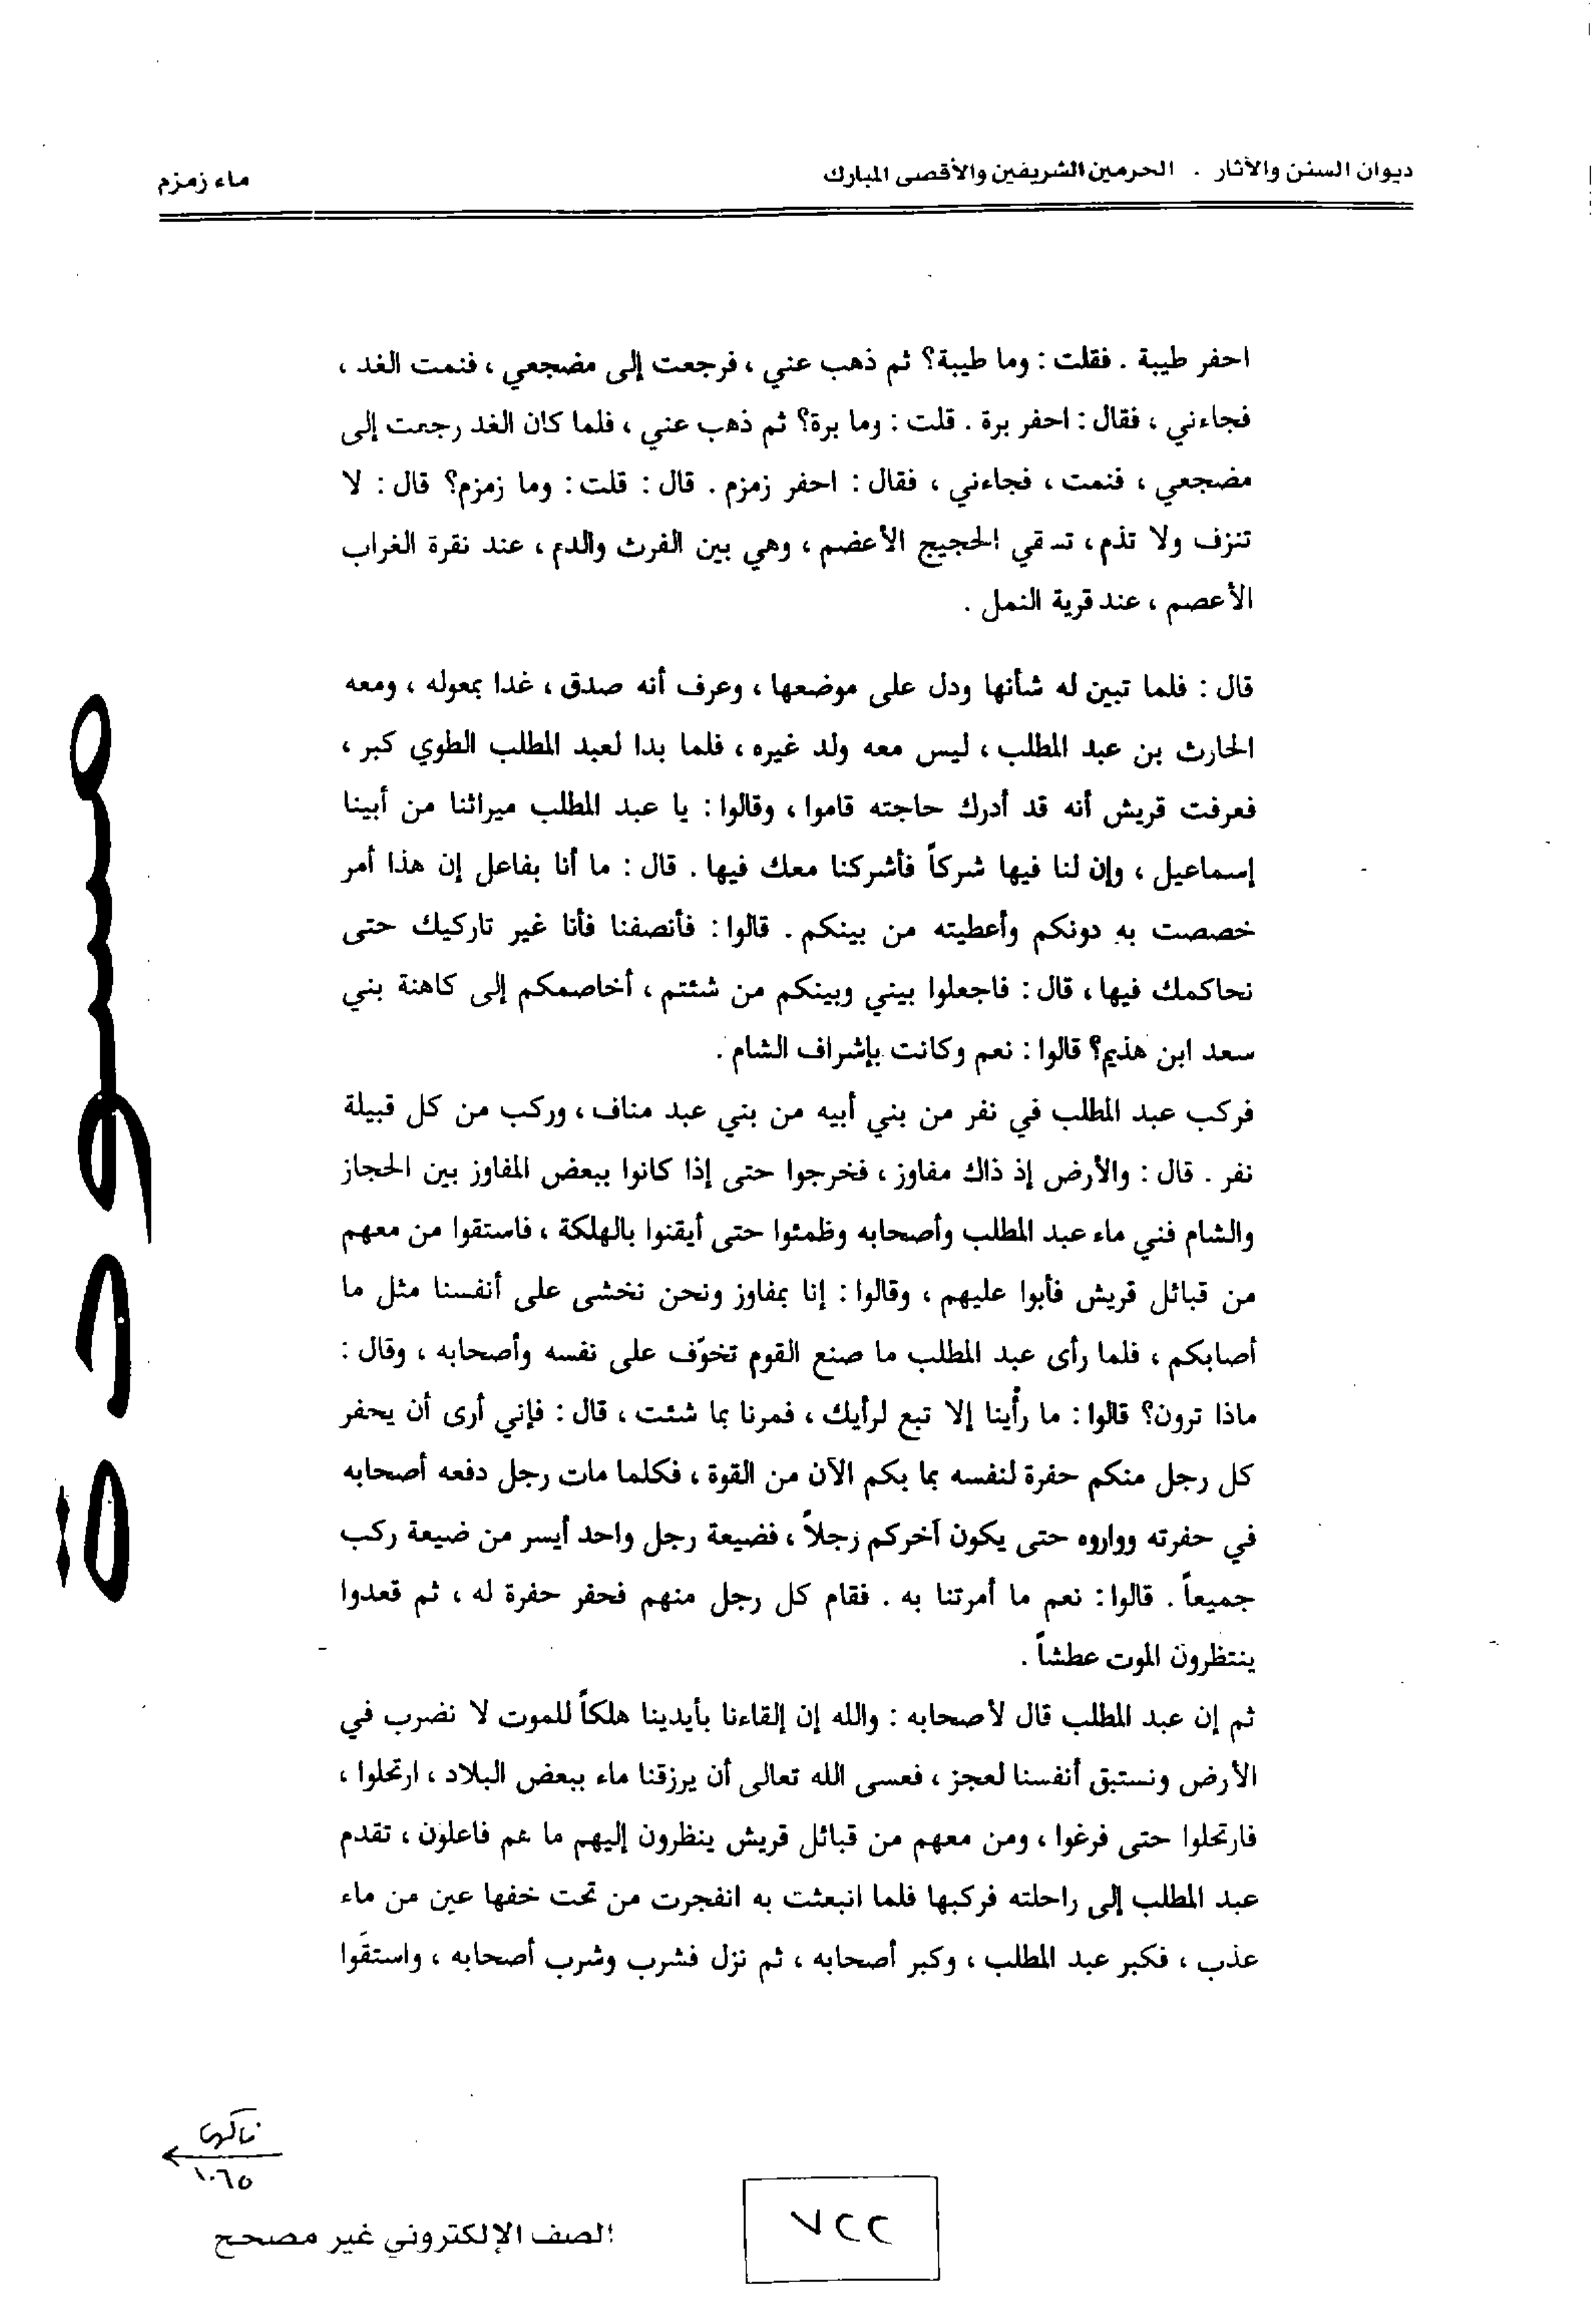 ديوان السنن والآثار . الحرمين الشريفين والأقصى المبارك
ماء زمزم
احفر طيبة . فقلت : وما طيبة؟ ثم ذهب عني ، فرجعت إلى مضجعي ، فنمت الغد ،
فجاءني ، فقال : احفر برة . قلت : وما برة؟ ثم ذهب عني ، فلما كان الغد رجعت إلى
مضجعي ، فنمت ، فجاءني ، فقال : احفر زمزم . قال : قلت : وما زمزم؟ قال : لا
تنزف ولا تذم ، تسقي الحجيج الأعضم ، وهي بين الفرث والدم ، عند نقرة الغراب
الأعصم ، عند قرية النمل .
قال : فلما تبين له شأنها ودل على موضعها ، وعرف أنه صدق ، غدا بمعوله ، ومعه
الحارث بن عبد المطلب ، ليس معه ولد غيره ، فلما بدا لعبد المطلب الطوي كبر ،
فعرفت قريش أنه قد أدرك حاجته قاموا ، وقالوا : يا عبد المطلب ميراثنا من أبينا
إسماعيل ، وإن لنا فيها شركاً فأشركنا معك فيها . قال : ما أنا بفاعل إن هذا أمر
خصصت به دونكم وأعطيته من بينكم . قالوا : فأنصفنا فأنا غير تاركيك حتى
نحاكمك فيها ، قال : فاجعلوا بيني وبينكم من شئتم ، أخاصمكم إلى كاهنة بني
سعد ابن هذيم؟ قالوا : نعم وكانت بإشراف الشام .
فركب عبد المطلب في نفر من بني أبيه من بني عبد مناف ، وركب من كل قبيلة
نفر . قال : والأرض إذ ذاك مفاوز ، فخرجوا حتى إذا كانوا ببعض المفاوز بين الحجاز
والشام فني ماء عبد المطلب وأصحابه وظمئوا حتى أيقنوا بالهلكة ، فاستقوا من معهم
من قبائل قريش فأبوا عليهم ، وقالوا : إنا بمفاوز ونحن نخشى على أنفسنا مثل ما
أصابكم ، فلما رأى عبد المطلب ما صنع القوم تخوّف على نفسه وأصحابه ، وقال :
ماذا ترون؟ قالوا : ما رأينا إلا تبع لرأيك ، فمرنا بما شئت ، قال : فإني أرى أن يحفر
كل رجل منكم حفرة لنفسه بما بكم الآن من القوة ، فكلما مات رجل دفعه أصحابه
في حفرته وواروه حتى يكون آخركم رجلاً ، فضيعة رجل واحد أيسر من ضيعة ركب
جميعاً . قالوا : نعم ما أمرتنا به . فقام كل رجل منهم فحفر حفرة له ، ثم قعدوا
ينتظرون الموت عطشاً .
ثم إن عبد المطلب قال لأصحابه : والله إن إلقاءنا بأيدينا هلكاً للموت لا نضرب في
الأرض ونستبق أنفسنا لعجز ، فعسى الله تعالى أن يرزقنا ماء ببعض البلاد ، ارتحلوا ،
فارتحلوا حتى فرغوا ، ومن معهم من قبائل قريش ينظرون إليهم ما هم فاعلون ، تقدم
عبد المطلب إلى راحلته فركبها فلما انبعثت به انفجرت من تحت خفها عين من ماء
عذب ، فكبر عبد المطلب ، وكبر أصحابه ، ثم نزل فشرب وشرب أصحابه ، واستقَوا
مسودة
١٠٦٥
الصف الإلكتروني غير مصحح
٧٢٢